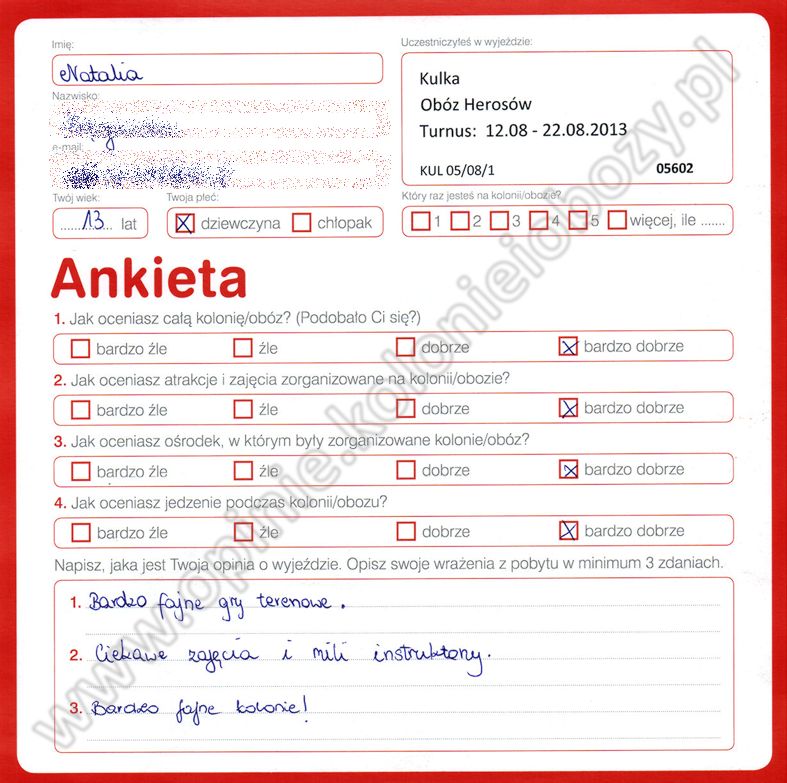 Imię:
Natalia
Nazwisko:
e-mail:
Twój wiek:
13 lat
Twoja płeć:
dziewczyna chłopak
Uczestniczyłeś w wyjeździe:
Kulka
Obóz Herosów
Turnus: 12.08 - 22.08.2013
KUL 05/08/1 05602
Który raz jesteś na kolonii/obozie?
1 2 3 4 5 więcej, ile .......
Ankieta
1. Jak oceniasz całą kolonię/obóz? (Podobało Ci się?)
bardzo źle źle dobrze bardzo dobrze
2. Jak oceniasz atrakcje i zajęcia zorganizowane na kolonii/obozie?
bardzo źle źle dobrze bardzo dobrze
3. Jak oceniasz ośrodek, w którym były zorganizowane kolonie/obóz?
bardzo źle źle dobrze bardzo dobrze
4. Jak oceniasz jedzenie podczas kolonii/obozu?
bardzo źle źle dobrze bardzo dobrze
Napisz, jaka jest Twoja opinia o wyjeździe. Opisz swoje wrażenia z pobytu w minimum 3 zdaniach.
1. Bardzo fajne gry terenowe.
2. Ciekawe zajęcia i mili instruktorzy.
3. Bardzo fajne kolonie!
www.opinie.kolonieiobozy.pl